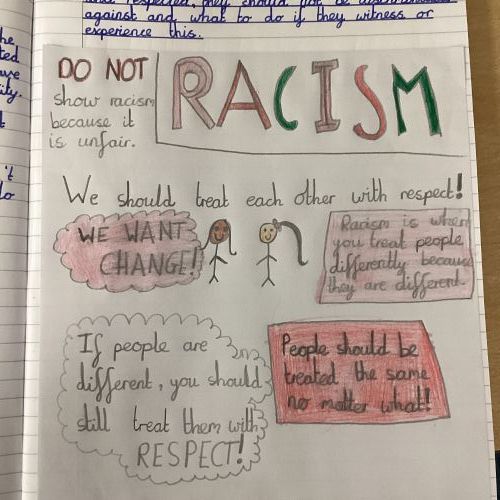 against and what to do if they witness or
experience this.
DO NOT
show racism
because it
is unfair.
RACISM
We should treat each other with respect!
WE WANT
CHANGE!
Racism is when
you treat people
differently because
they are different.
If people are
different, you should
still treat them with
RESPECT!
People should be
treated the same
no matter what!